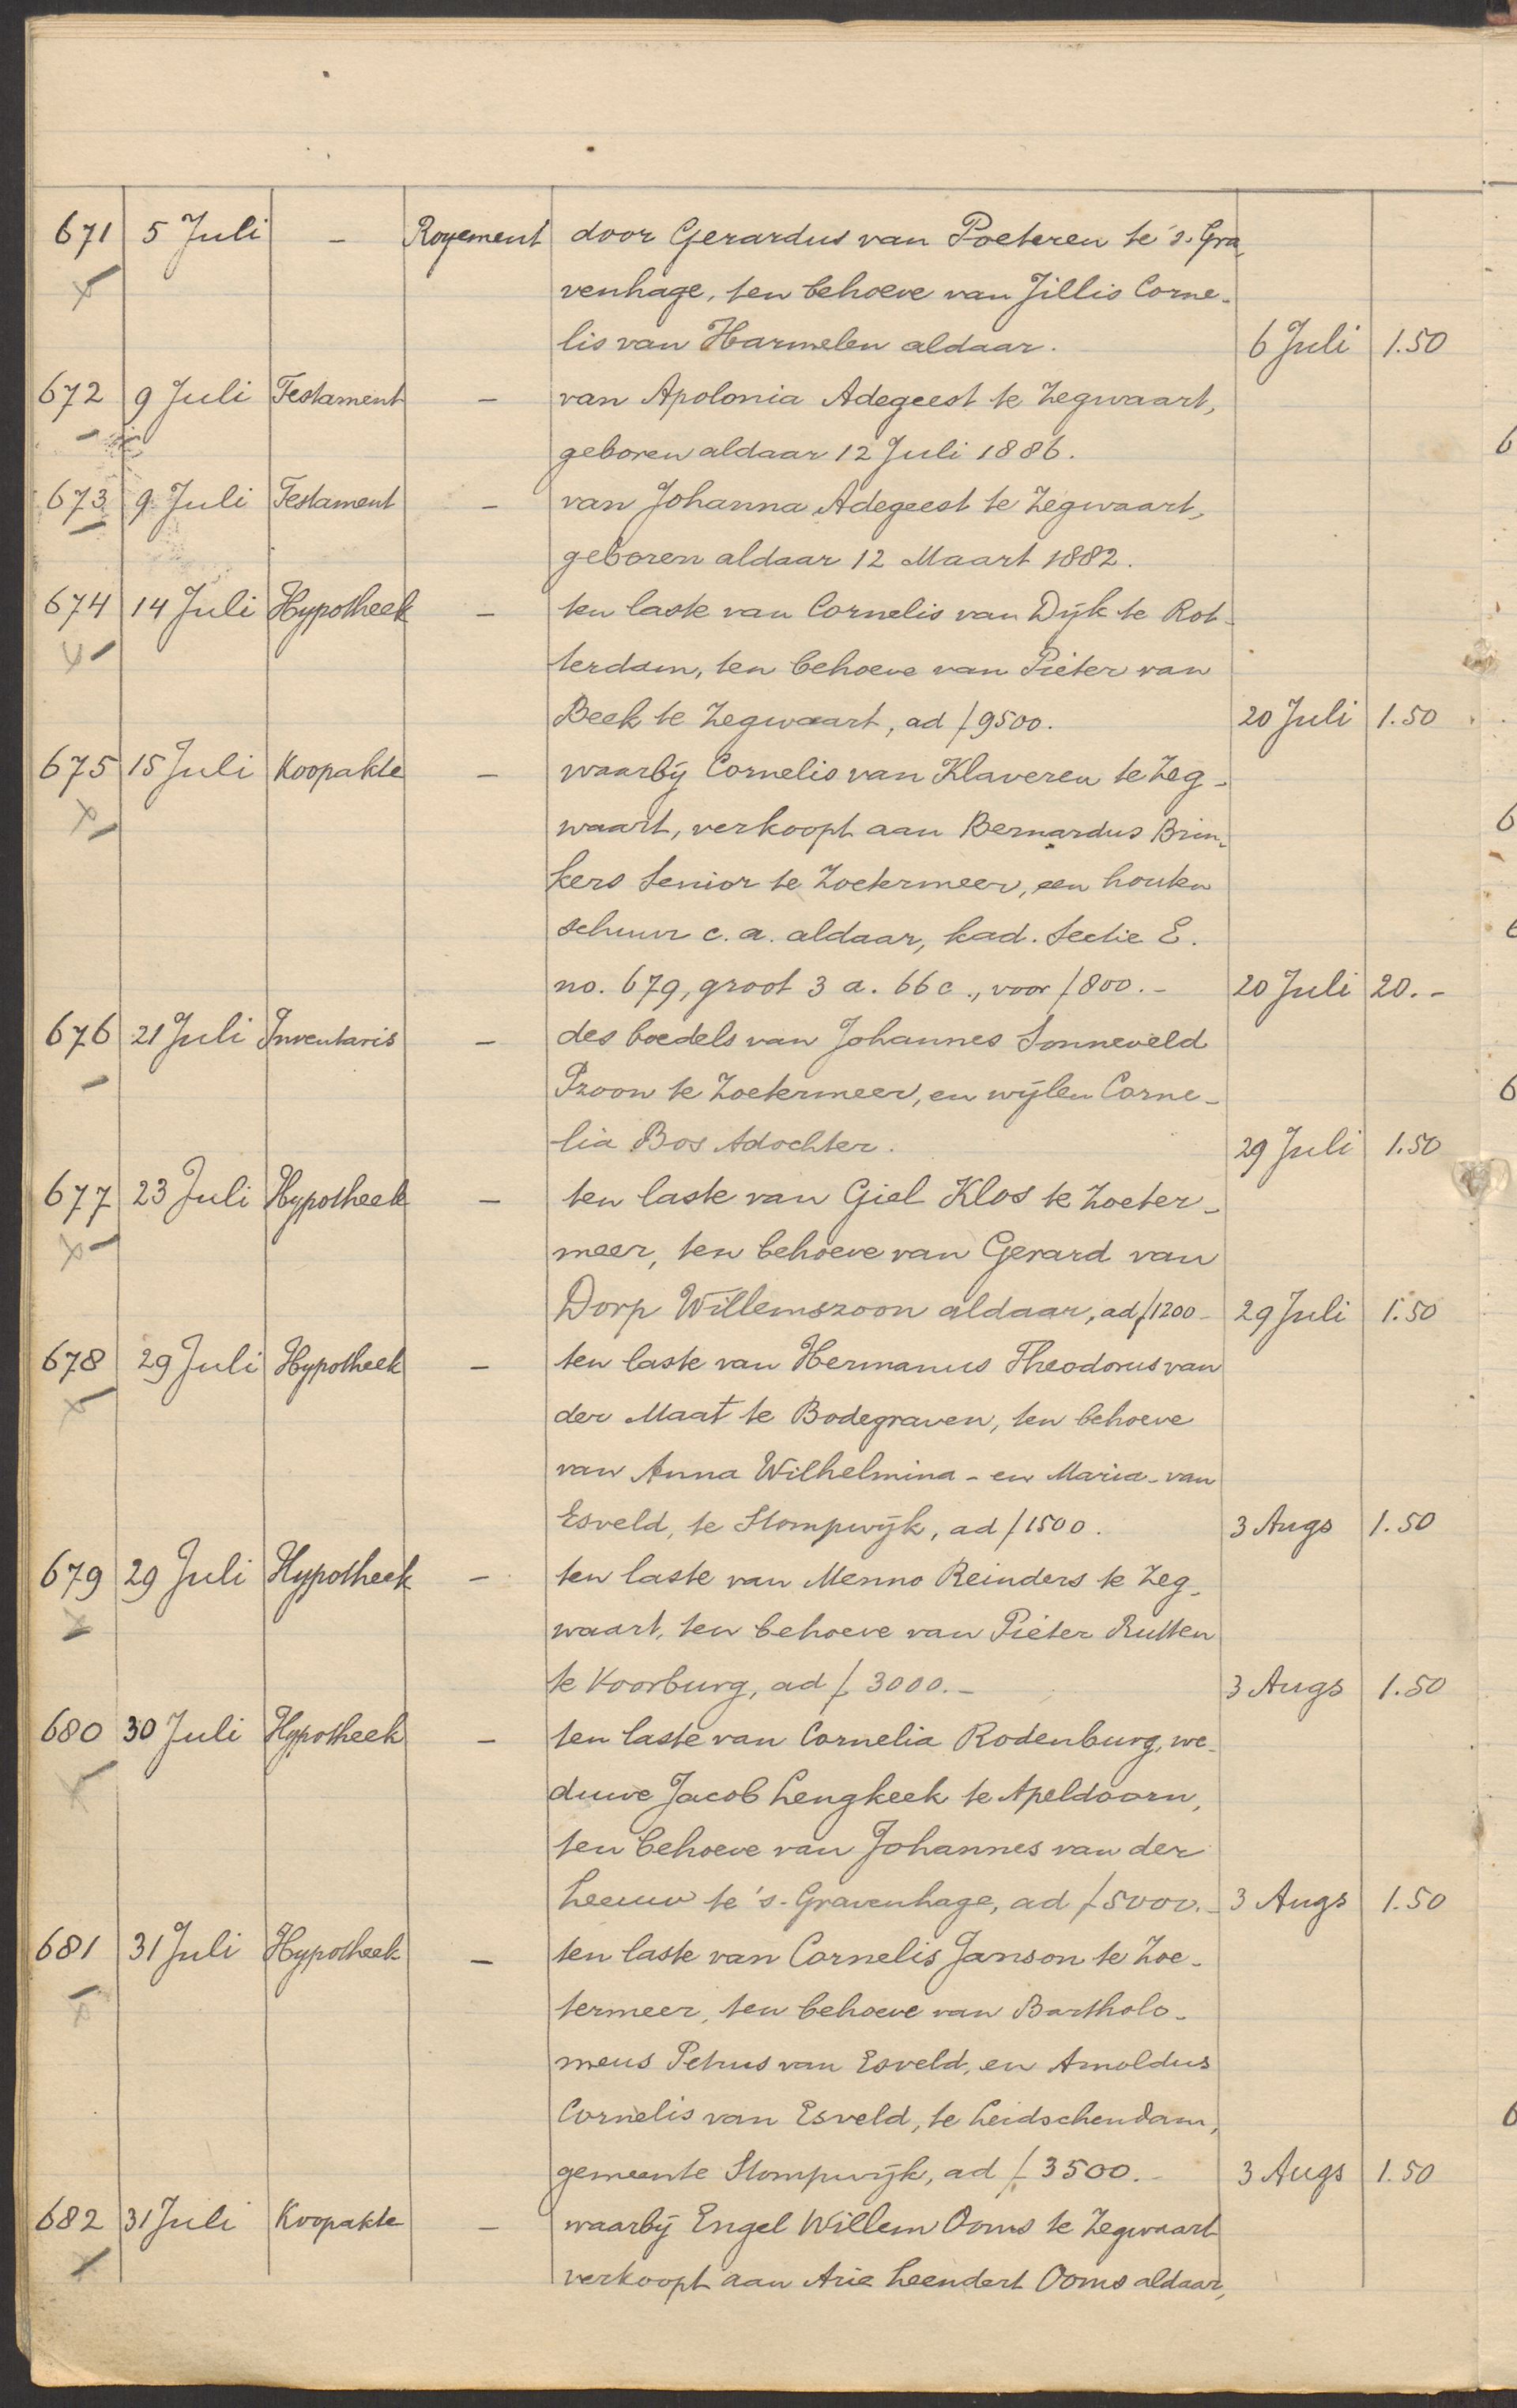 671 5 Juli - Royement door Gerardus van Poeteren te 's. Gra-
venhage, ten behoeve van Jillis Corne-
lis van Harmelen aldaar. 6 Juli 1.50
672 9 Juli Testament - van Apolonia Adegeest te Zegwaart,
geboren aldaar 12 Juli 1886.
673 9 Juli Testament - van Johanna Adegeest te Zegwaart,
geboren aldaar 12 Maart 1882.
674 14 Juli Hypotheek - ten laste van Cornelis van Dijk te Rot-
terdam, ten behoeve van Pieter van
Beek te Zegwaart, ad ƒ 9500. 20 Juli 1.50
675 15 Juli Koopakte - waarbij Cornelis van Klaveren te Zeg-
waart, verkoopt aan Bernardus Brin-
kers Senior te Zoetermeer, een houten
schuur c.a. aldaar, kad. Sectie E.
no. 679, groot 3 a. 66 c., voor ƒ 800.- 20 Juli 20.-
676 21 Juli Inventaris - des boedels van Johannes Sonneveld
Pzoon te Zoetermeer, en wijlen Corne-
lia Bos Adochter. 29 Juli 1.50
677 23 Juli Hypotheek - ten laste van Giel Klos te Zoeter-
meer, ten behoeve van Gerard van
Dorp Willemszoon aldaar, ad ƒ 1200- 29 Juli 1.50
678 29 Juli Hypotheek - ten laste van Hermanus Theodorus van
der Maat te Bodegraven, ten behoeve
van Anna Wilhelmina - en Maria - van
Esveld, te Stompwijk, ad ƒ 1500. 3 Augs 1.50
679 29 Juli Hypotheek - ten laste van Menno Reinders te Zeg-
waart, ten behoeve van Pieter Rutten
te Voorburg, ad ƒ 3000.- 3 Augs 1.50
680 30 Juli Hypotheek - ten laste van Cornelia Rodenburg, we-
duwe Jacob Lengkeek te Apeldoorn,
ten behoeve van Johannes van der
Leeuw te 's-Gravenhage, ad ƒ 5000.- 3 Augs 1.50
681 31 Juli Hypotheek - ten laste van Cornelis Janson te Zoe-
termeer, ten behoeve van Bartholo-
meus Petrus van Esveld, en Arnoldus
Cornelis van Esveld, te Leidschendam,
gemeente Stompwijk, ad ƒ 3500.- 3 Augs 1.50
682 31 Juli Koopakte - waarbij Engel Willem Ooms te Zegwaart
verkoopt aan Arie Leendert Ooms aldaar,